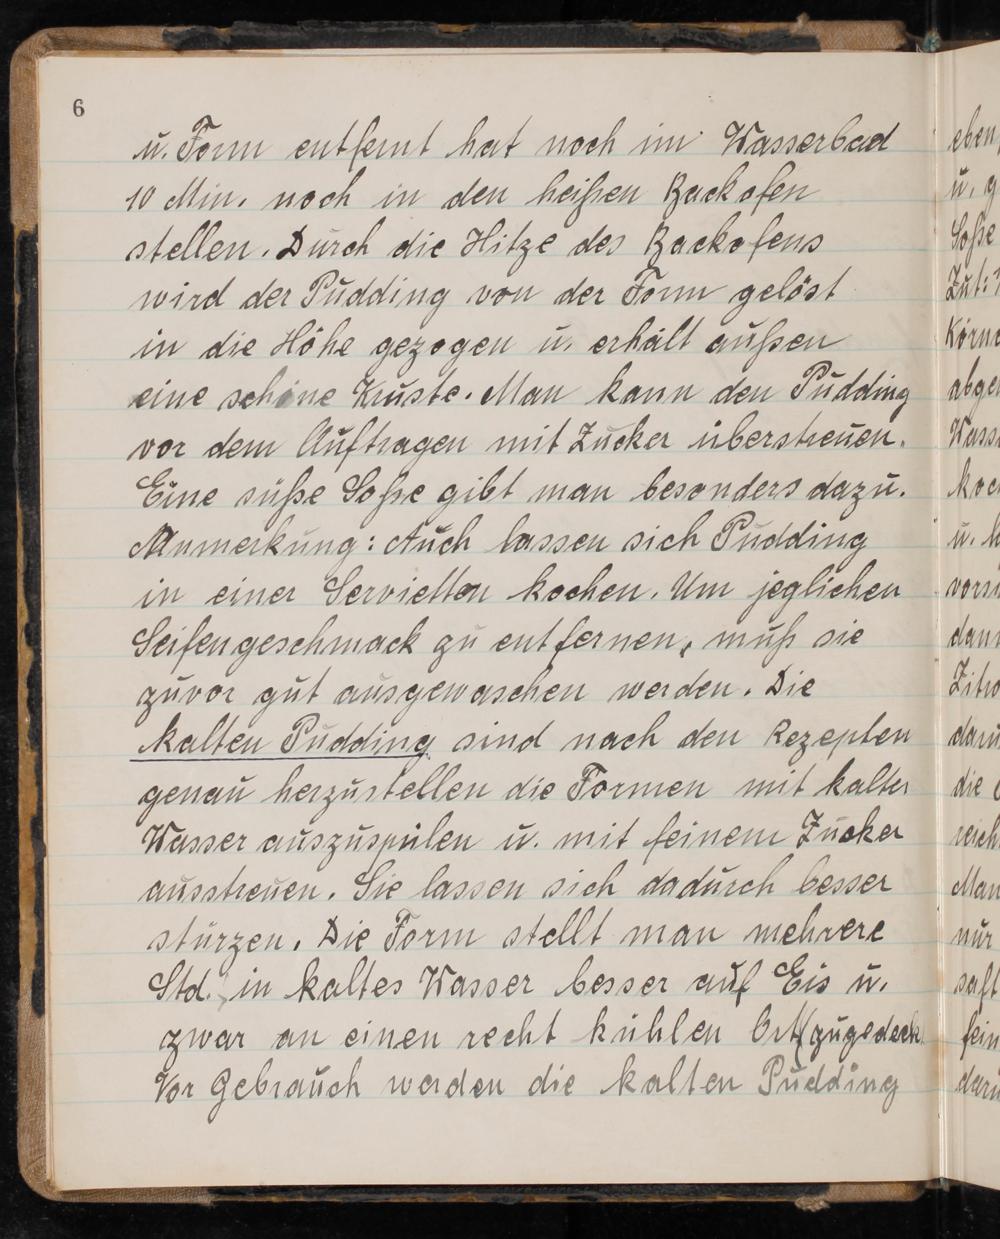 6
u. Form entfernt hat noch im Wasserbad
10 Min. noch in den heißen Backofen
stellen. Durch die Hitze des Backofens
wird der Pudding von der Form gelöst
in die Höhe gezogen u. erhält außen
eine schöne Kruste. Man kann den Pudding
vor dem Auftragen mit Zucker überstreuen.
Eine süße Soße gibt man besonders dazu.
Anmerkung: Auch lassen sich Pudding
in einer Servietten kochen. Um jeglichen
Seifengeschmack zu entfernen, muß sie
zuvor gut ausgewaschen werden. Die
kalten Pudding sind nach den Rezepten
genau herzustellen die Formen mit kalten
Wasser auszuspülen u. mit feinem Zucker
ausstreuen. Sie lassen sich dadurch besser
stürzen. Die Form stellt man mehrere
Std. in kaltes Wasser besser auf Eis u.
zwar an einen recht kühlen Ort (zugedeck
Vor Gebrauch werden die kalten Pudding
eben
u. g
Soße
Zut:
Körne
abge
Wass
koc
u. l
vors
dann
Zitro
daru
die
reich
Man
nur
saft
fein
daru